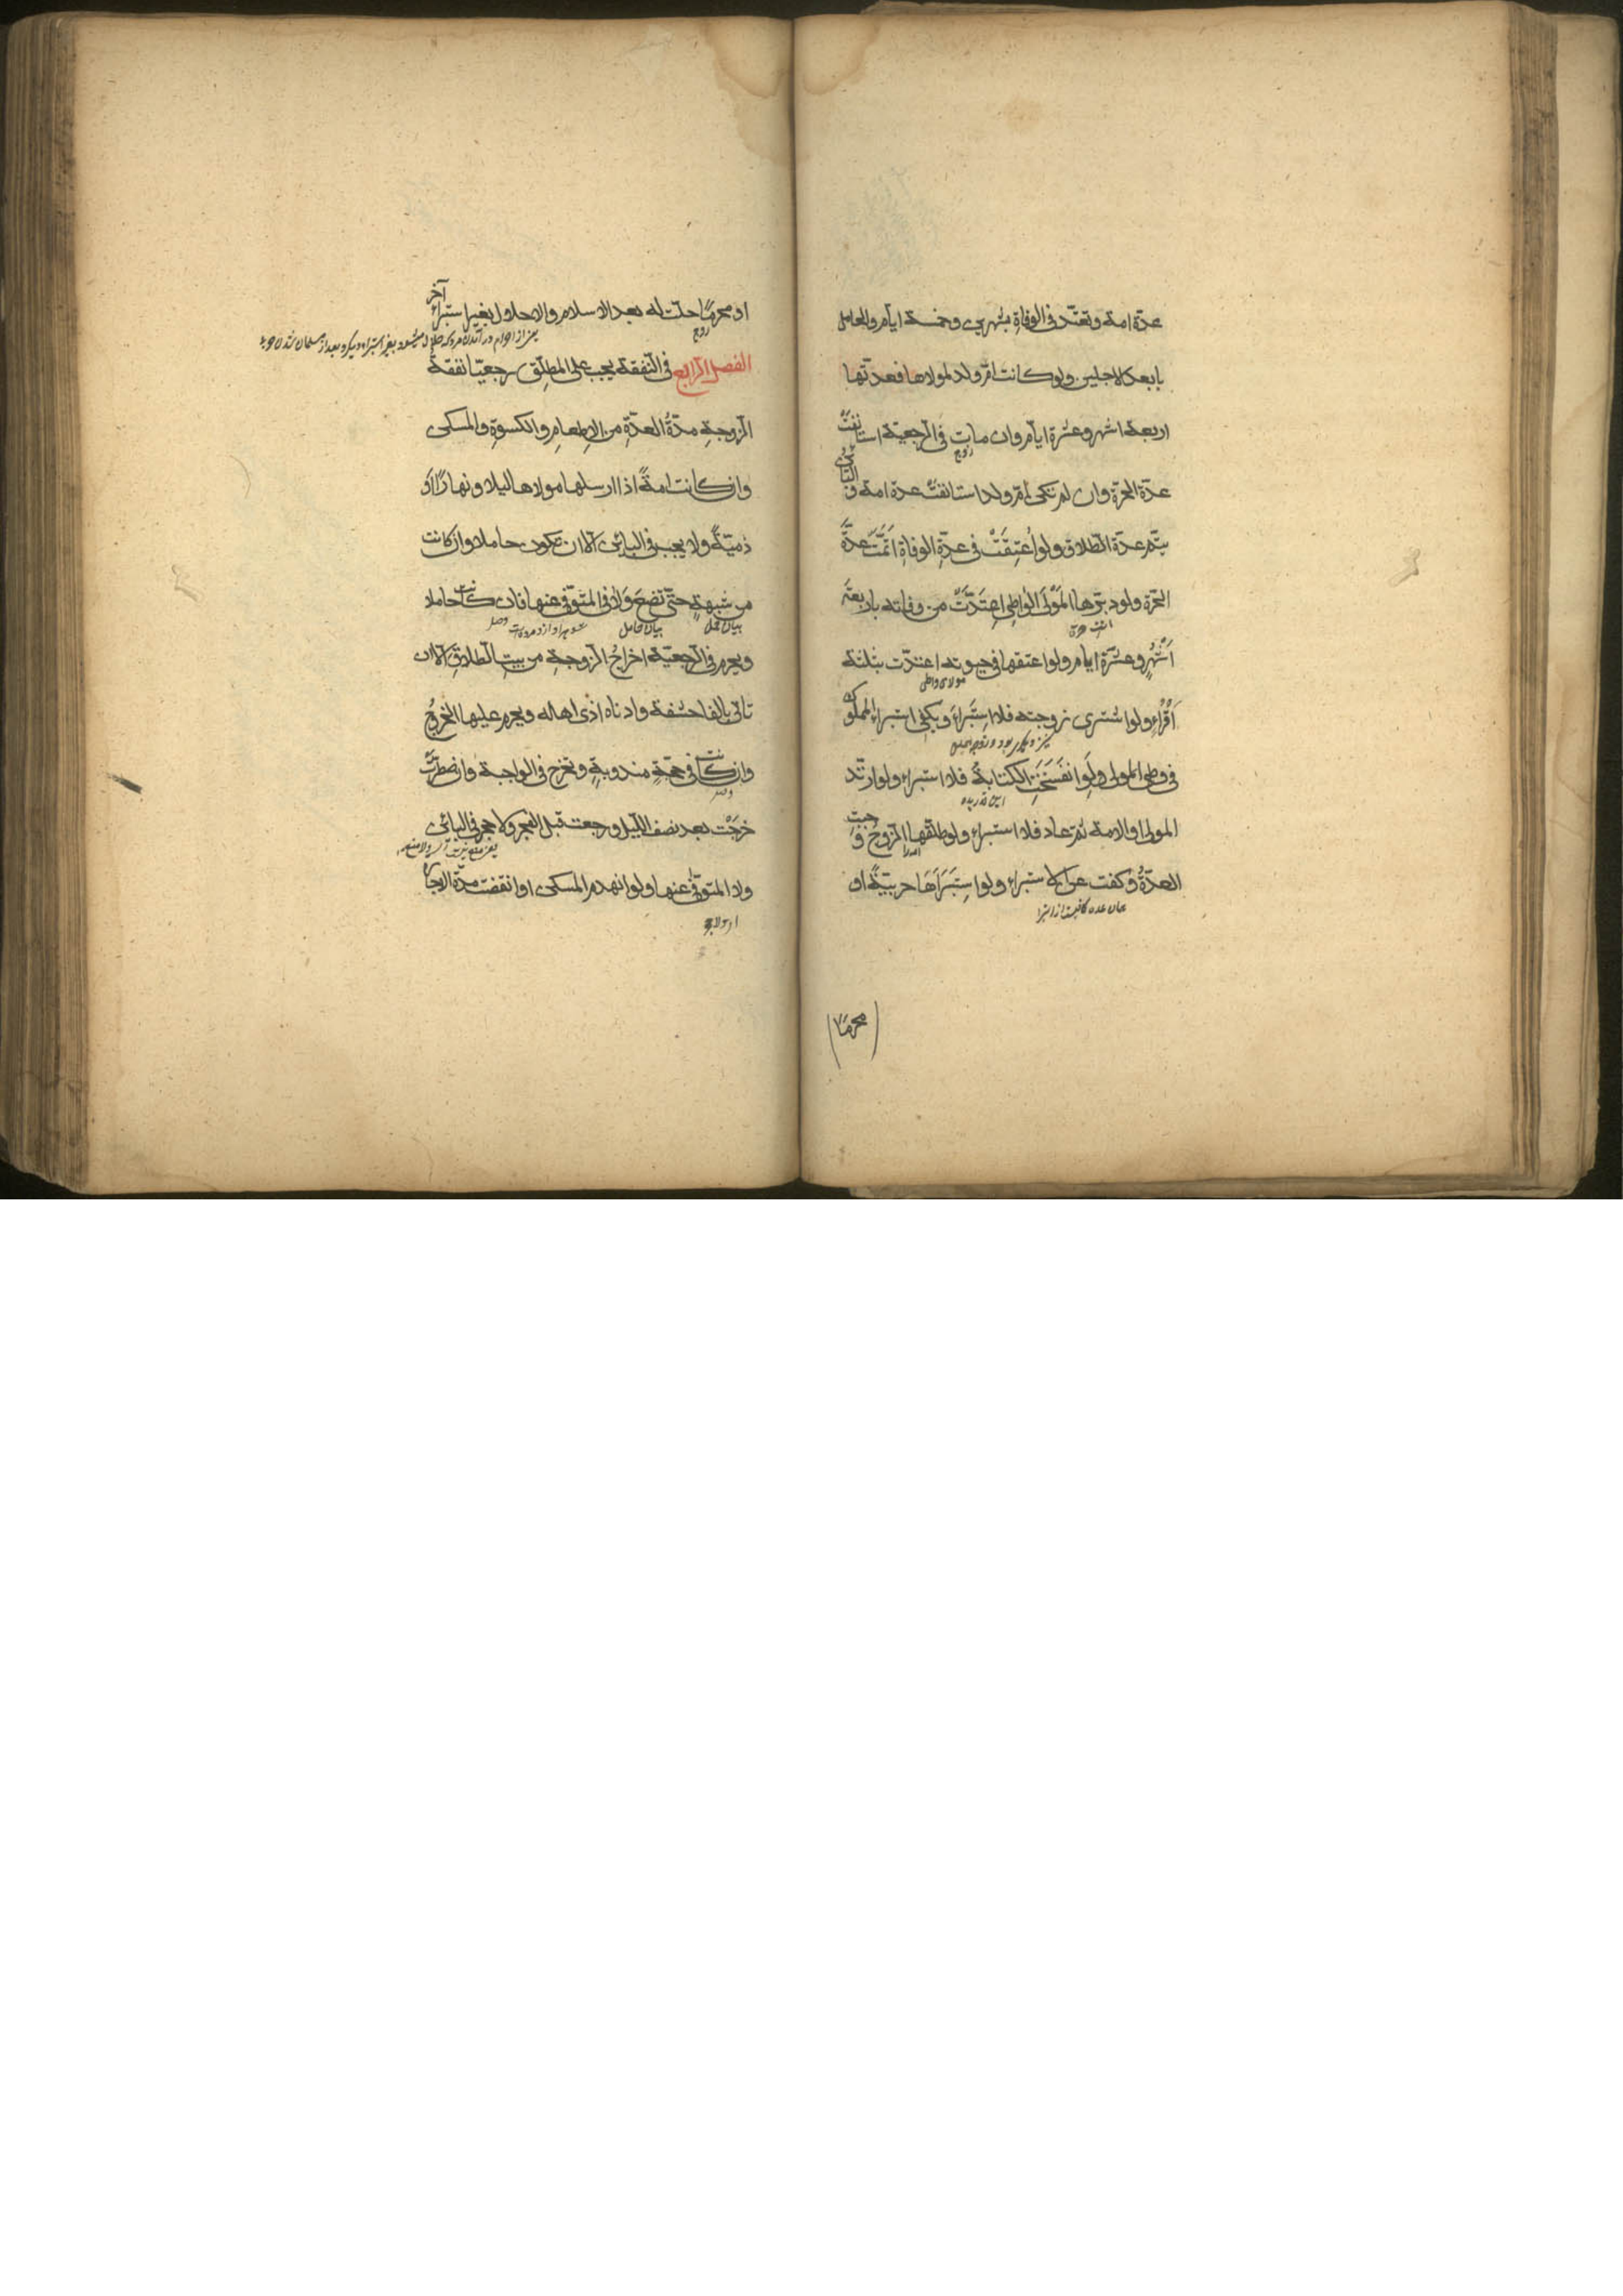 عدّة امة وتعتدّ فى الوفاةِ بشهرين وخمسة ايّام والحامل
بابعد الاجلين ولو كانت امّ ولد لمولاها فعدّتها
اربعة اشهر وعشرة ايّام وان مات فى الرجعيّة استانفتْ
زوج
عدّة الحرّة وان لم تكن امّ ولد استانفتْ عدة امة و
البائن
يتمّ عدّة الطّلاق ولو اُعتِقَتْ فى عدّةِ الوفاةِ اتمَّتْ عدّةَ
الحرّة ولو دبّرها المَوْلَى الواطِى اعتَدَّتْ من وفاته باربعة
اَشْهُرٍ وعشرة ايام ولو اعتقها فى حيوته اعتدّت بثلثة
مولاى واطى
اَقْرَاءٍ ولو اشترى زوجته فلا استِبْراءَ ويكفى استبراء المملوكة
فى وطى المولى ولَو انفَسَخَتِ الكتابةُ فلا استبراء ولو ارتدّ
المولى او الامة ثمّ عاد فلا استبراء ولو طلّقها الزوجُ وَجبت
العدّةُ وكفت عن الاستبراء ولو استَبْرَاَهَا حربيّةً او
محرمًا
او محرمًا حلّت له بعد الاسلام والاحلال بغير استبراءٍ آخر
زوج
الفصل الرّابع فى النّفقة يجب على المطلّق رجعيّا نفقة
الزوجةِ مدّةَ العدّةِ من الاِطعامِ والكسوةِ والمسكن
وان كانت امةً اذا ارسلها مولاها ليلا ونهارًا اَو
ذميّةً ولا يجب فى البائن الّا ان تكون حاملا وان كانت
من شبهةٍ حتّى تضعَ وَلا فى المتوفّى عنها وان كانت حاملا
بيان حامل
ويحرم فى الرجعيّة اخراجُ الزوجةِ من بيتِ الطّلاقِ الّا ان
تاتى بالفاحشة وادناه اذى اهله ويحرم عليها الخروجُ
وان كانت فى حجّةٍ مندوبةٍ وتخرج فى الواجبة وان اضطرّتْ
خرجَتْ بعد نصف اللّيل ورجعت قبل الفجر ولا حجر فى البائن
ولا المتوفّى عنها ولو انهدم المسكن او انقضت مدّة الاجارة